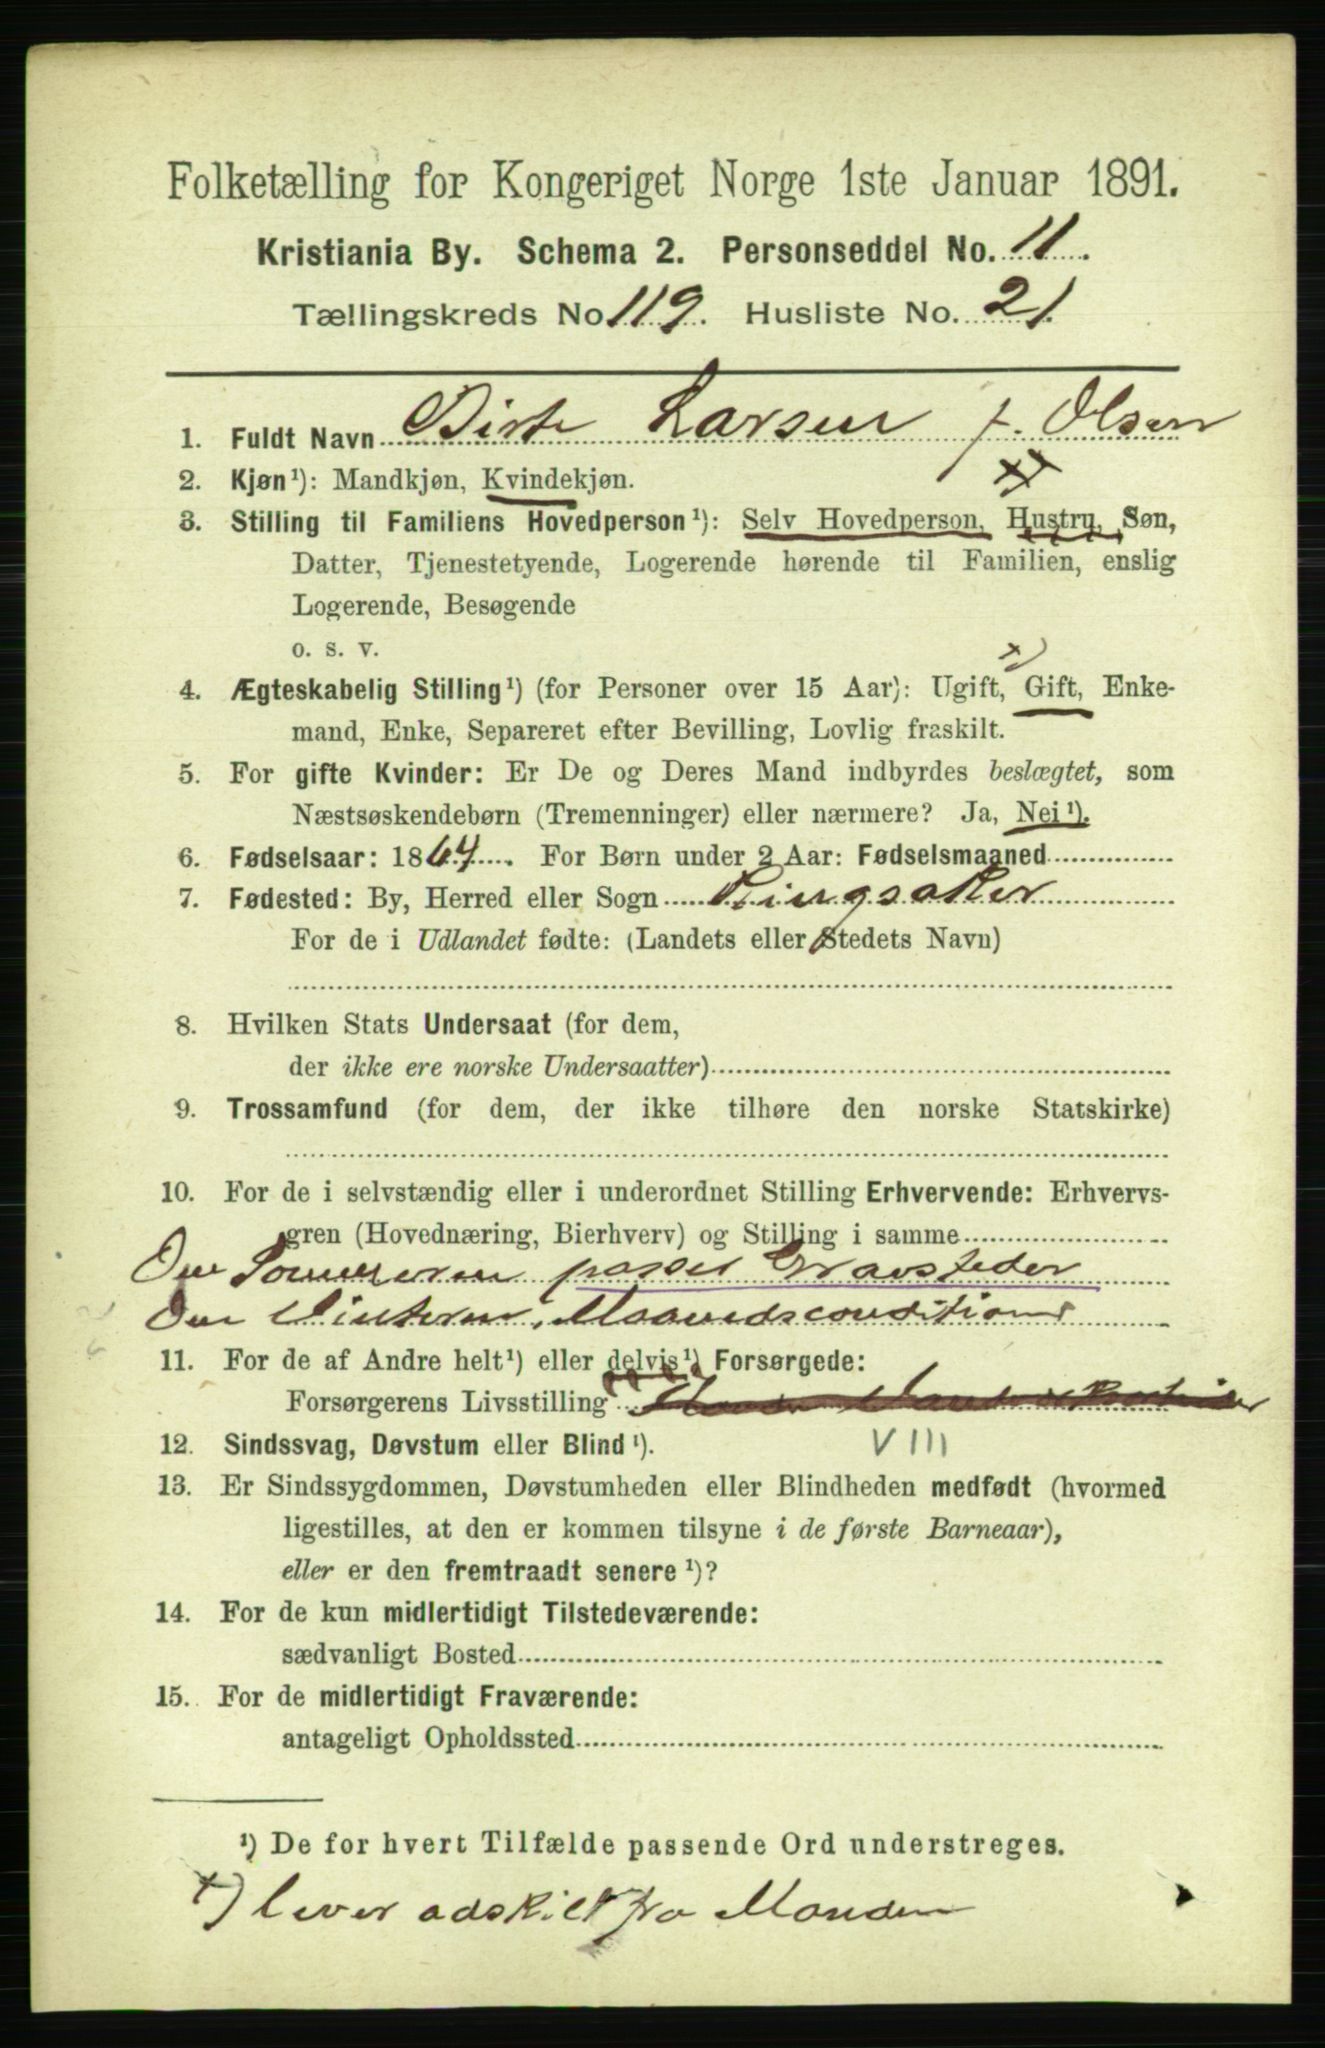 Folketælling for Kongeriget Norge 1ste Januar 1891.
Kristiania By. Schema 2. Personseddel No. 11.
Tællingskreds No. 119. Husliste No. 21.
1. Fuldt Navn Birte Larsen f. Olsen
2. Kjøn¹): Mandkjøn, Kvindekjøn.
3. Stilling til Familiens Hovedperson¹): Selv Hovedperson, Hustru, Søn,
Datter, Tjenestetyende, Logerende hørende til Familien, enslig
Logerende, Besøgende
o. s. v.
4. Ægteskabelig Stilling¹) (for Personer over 15 Aar): Ugift, Gift, Enke-
mand, Enke, Separeret efter Bevilling, Lovlig fraskilt.
5. For gifte Kvinder: Er De og Deres Mand indbyrdes beslægtet, som
Næstsøskendebørn (Tremenninger) eller nærmere? Ja, Nei¹).
6. Fødselsaar: 1864. For Børn under 2 Aar: Fødselsmaaned
7. Fødested: By, Herred eller Sogn Ringsaker
For de i Udlandet fødte: (Landets eller Stedets Navn)
8. Hvilken Stats Undersaat (for dem,
der ikke ere norske Undersaatter)
9. Trossamfund (for dem, der ikke tilhøre den norske Statskirke)
10. For de i selvstændig eller i underordnet Stilling Erhvervende: Erhvervs-
gren (Hovednæring, Bierhverv) og Stilling i samme
Om Sommeren passer Gravsteder
Om Vinteren, Maanedscondition
11. For de af Andre helt¹) eller delvis¹) Forsørgede:
Forsørgerens Livsstilling
VIII
12. Sindssvag, Døvstum eller Blind¹).
13. Er Sindssygdommen, Døvstumheden eller Blindheden medfødt (hvormed
ligestilles, at den er kommen tilsyne i de første Barneaar),
eller er den fremtraadt senere¹)?
14. For de kun midlertidigt Tilstedeværende:
sædvanligt Bosted
15. For de midlertidigt Fraværende:
antageligt Opholdssted
¹) De for hvert Tilfælde passende Ord understreges.
x) lever adskilt fra Manden